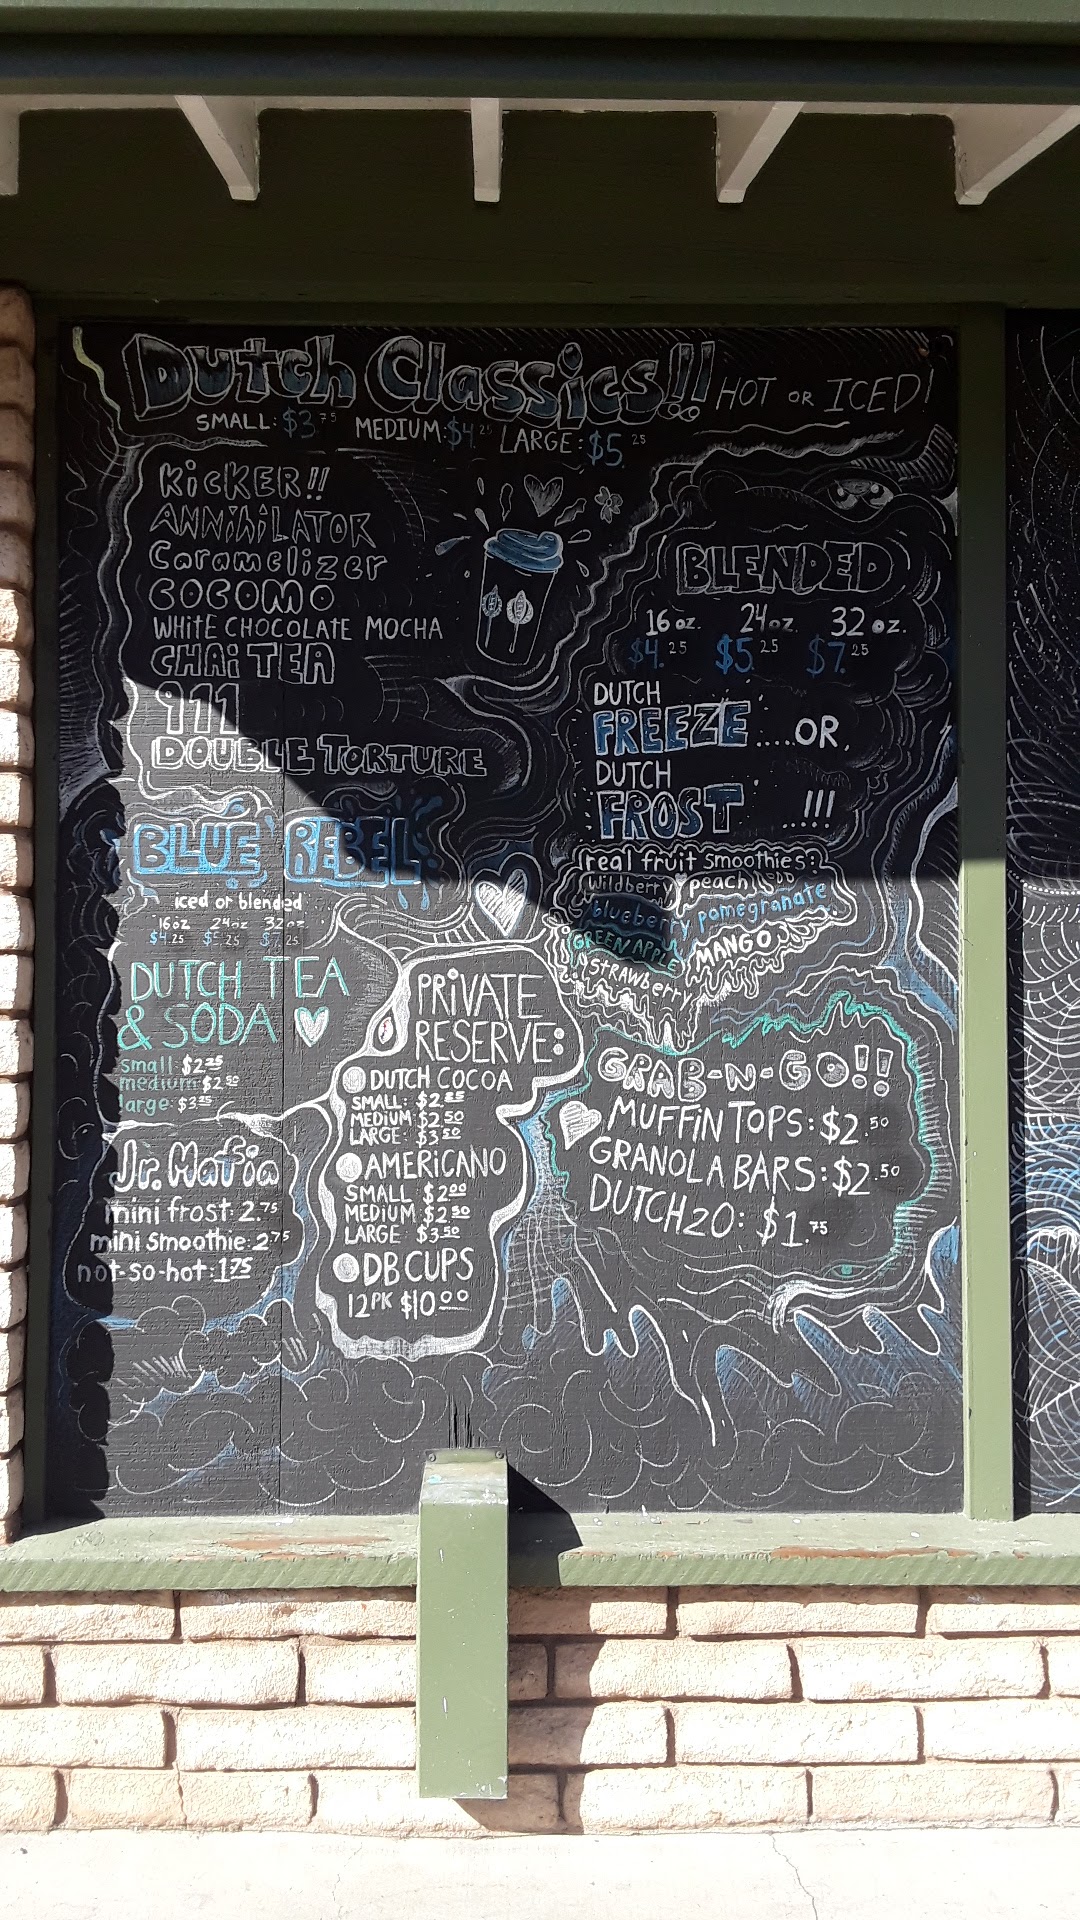 Dutch Classics!! HOT OR ICED!
SMALL: $3.75 MEDIUM: $4.25 LARGE: $5.25
KiCKER!!
ANNihiLATOR
Caramelizer
COCOMO
WHITE CHOCOLATE MOCHA
CHAi TEA
911
DOUBLE TORTURE
BLUE REBEL
iced or blended
16oz 24oz 32oz
$4.25 $5.25 $7.25
DUTCH TEA
& SODA
small: $2.25
medium: $2.50
large: $3.25
Jr. Mafia
mini frost: 2.75
mini smoothie: 2.75
not-so-hot: 1.75
PRiVATE
RESERVE:
DUTCH COCOA
SMALL: $2.25
MEDIUM $2.50
LARGE: $3.50
AMERiCANO
SMALL $2.00
MEDIUM $2.50
LARGE $3.50
DB CUPS
12PK $10.00
BLENDED
16 oz. 24 oz. 32 oz.
$4.25 $5.25 $7.25
DUTCH
FREEZE .....OR,
DUTCH
FROST ...!!!
real fruit smoothies:
wildberry peach
blueberry pomegranate
GREEN APPLE MANGO
STRAWBERRY
GRAB-N-GO!!
MUFFIN TOPS: $2.50
GRANOLA BARS: $2.50
DUTCH2O: $1.75